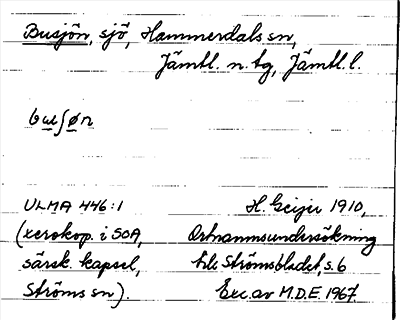 Busjön, sjö, Hammerdals sn,
Jämtl. n. tg, Jämtl. l.
bɯʃøn
ULMA 446:1 H. Geijer 1910,
(xerokop. i SOA, Ortnamnsundersökning
särsk. kapsel, Strömsbladet, s. 6
Ströms sn). Exc. av M.D.E. 1967